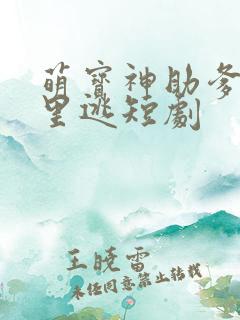 萌寶神助爹
里逃短劇
王曉雷
未经同意禁止转载